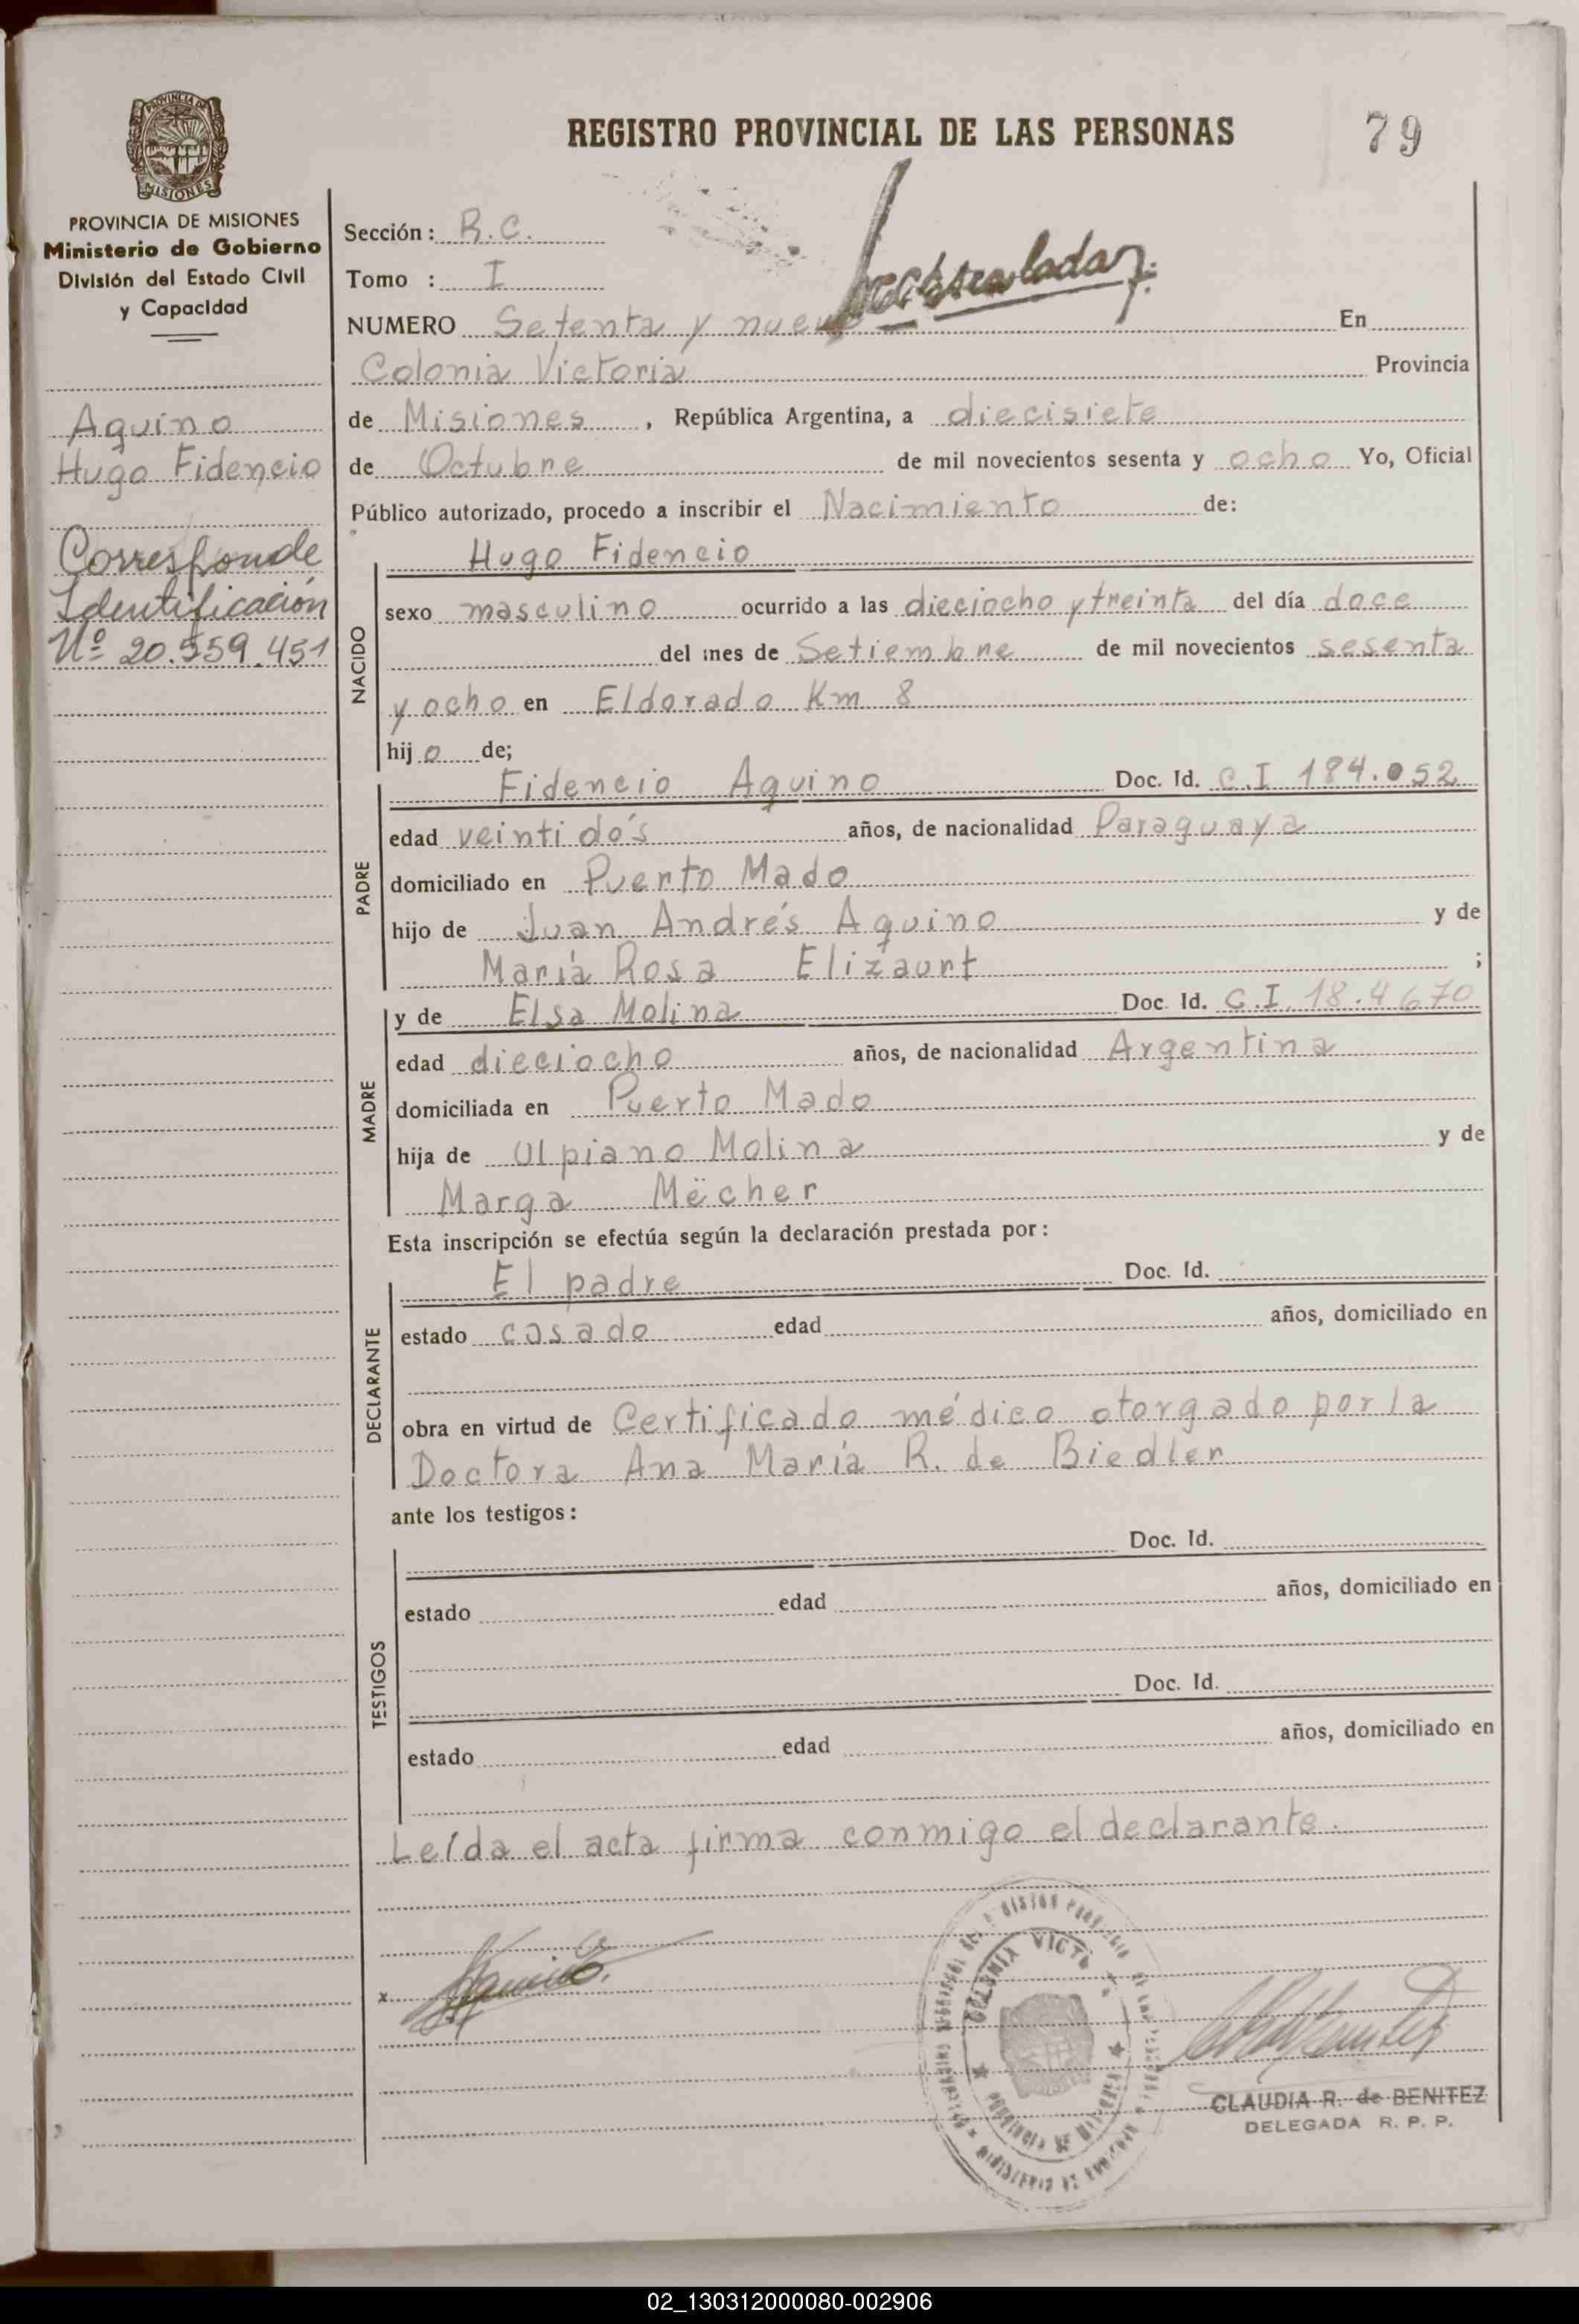 REGISTRO PROVINCIAL DE LAS PERSONAS
79
PROVINCIA DE MISIONES
MISIONES
PROVINCIA DE MISIONES
Ministerio de Gobierno
División del Estado Civil
y Capacidad
Aquino
Hugo Fidencio
Corresponde
Identificación
Nº 20.559.451
Sección: R.C.
Tomo : I
NUMERO Setenta y nueve En
Colonia Victoria Provincia
de Misiones, República Argentina, a diecisiete
de Octubre de mil novecientos sesenta y ocho Yo, Oficial
Público autorizado, procedo a inscribir el Nacimiento de:
NACIDO
Hugo Fidencio
sexo masculino ocurrido a las dieciocho y treinta del día doce
del mes de Setiembre de mil novecientos sesenta
y ocho en Eldorado Km 8
hijo de;
PADRE
Fidencio Aquino Doc. Id. C.I 184.052
edad veintidós años, de nacionalidad Paraguaya
domiciliado en Puerto Mado
hijo de Juan Andrés Aquino y de
María Rosa Elizaurt ;
MADRE
y de Elsa Molina Doc. Id. C.I. 18.4670
edad dieciocho años, de nacionalidad Argentina
domiciliada en Puerto Mado
hija de Ulpiano Molina y de
Marga Mëcher
Esta inscripción se efectúa según la declaración prestada por:
DECLARANTE
El padre Doc. Id.
estado casado edad años, domiciliado en
obra en virtud de Certificado médico otorgado por la
Doctora Ana María R. de Biedler
ante los testigos:
TESTIGOS
Doc. Id.
estado edad años, domiciliado en
Doc. Id.
estado edad años, domiciliado en
Leída el acta firma conmigo el declarante.
x
COLONIA VICTO
PROVINCIA DE MISIONES
CLAUDIA R. de BENITEZ
DELEGADA R. P. P.
02_130312000080-002906